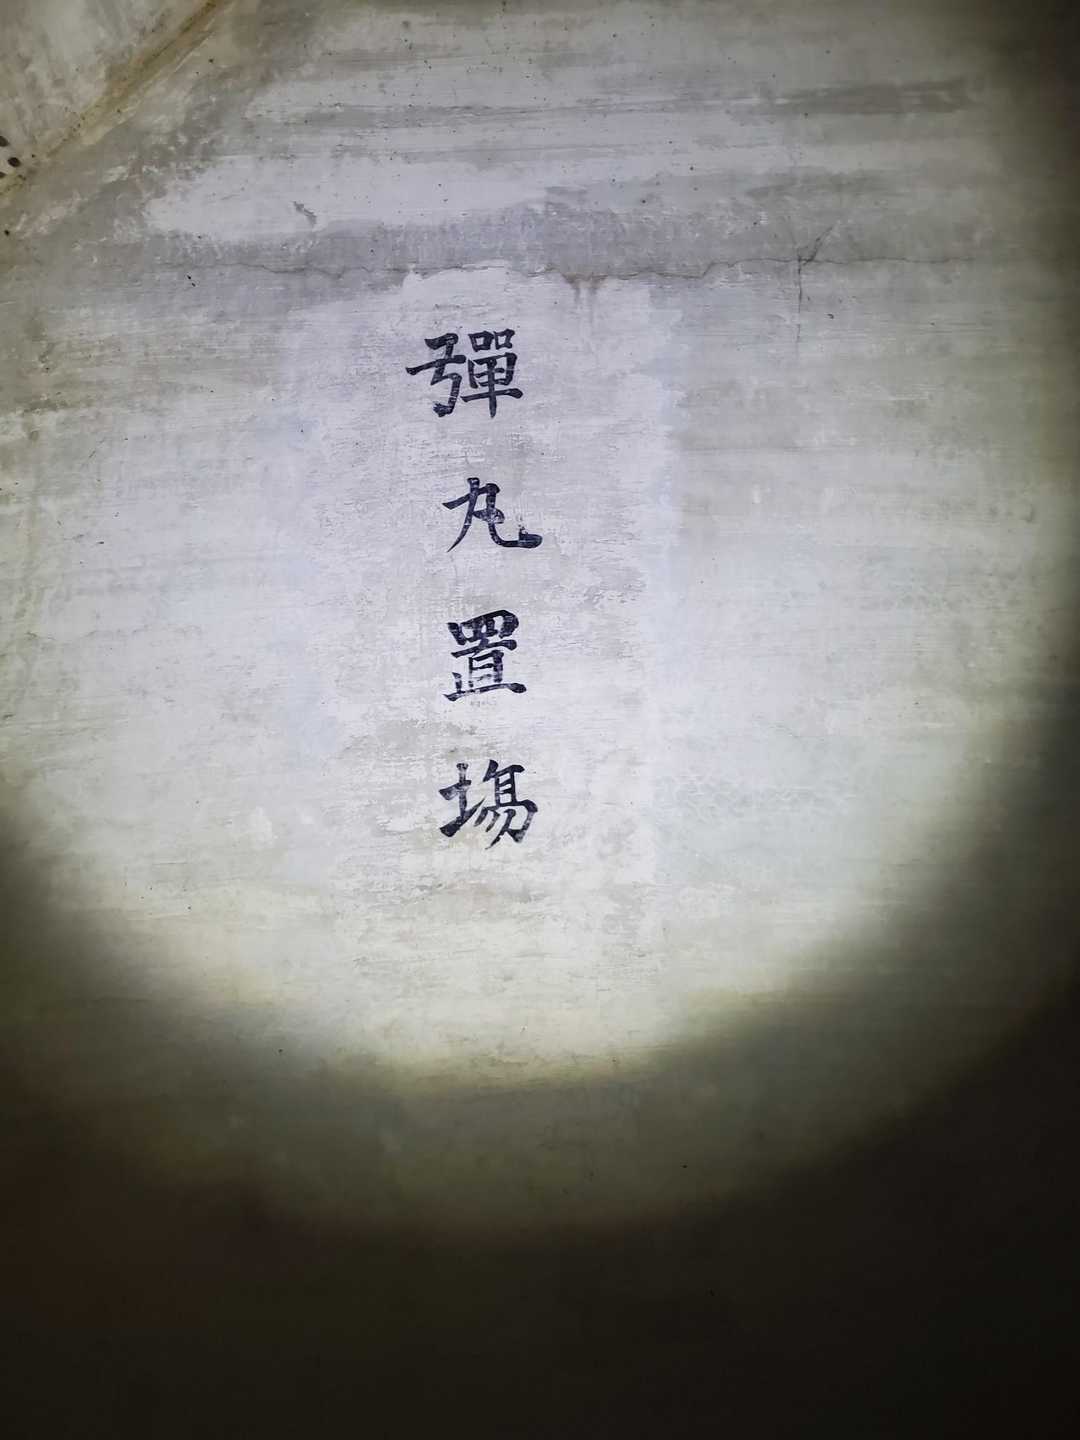 彈丸置場